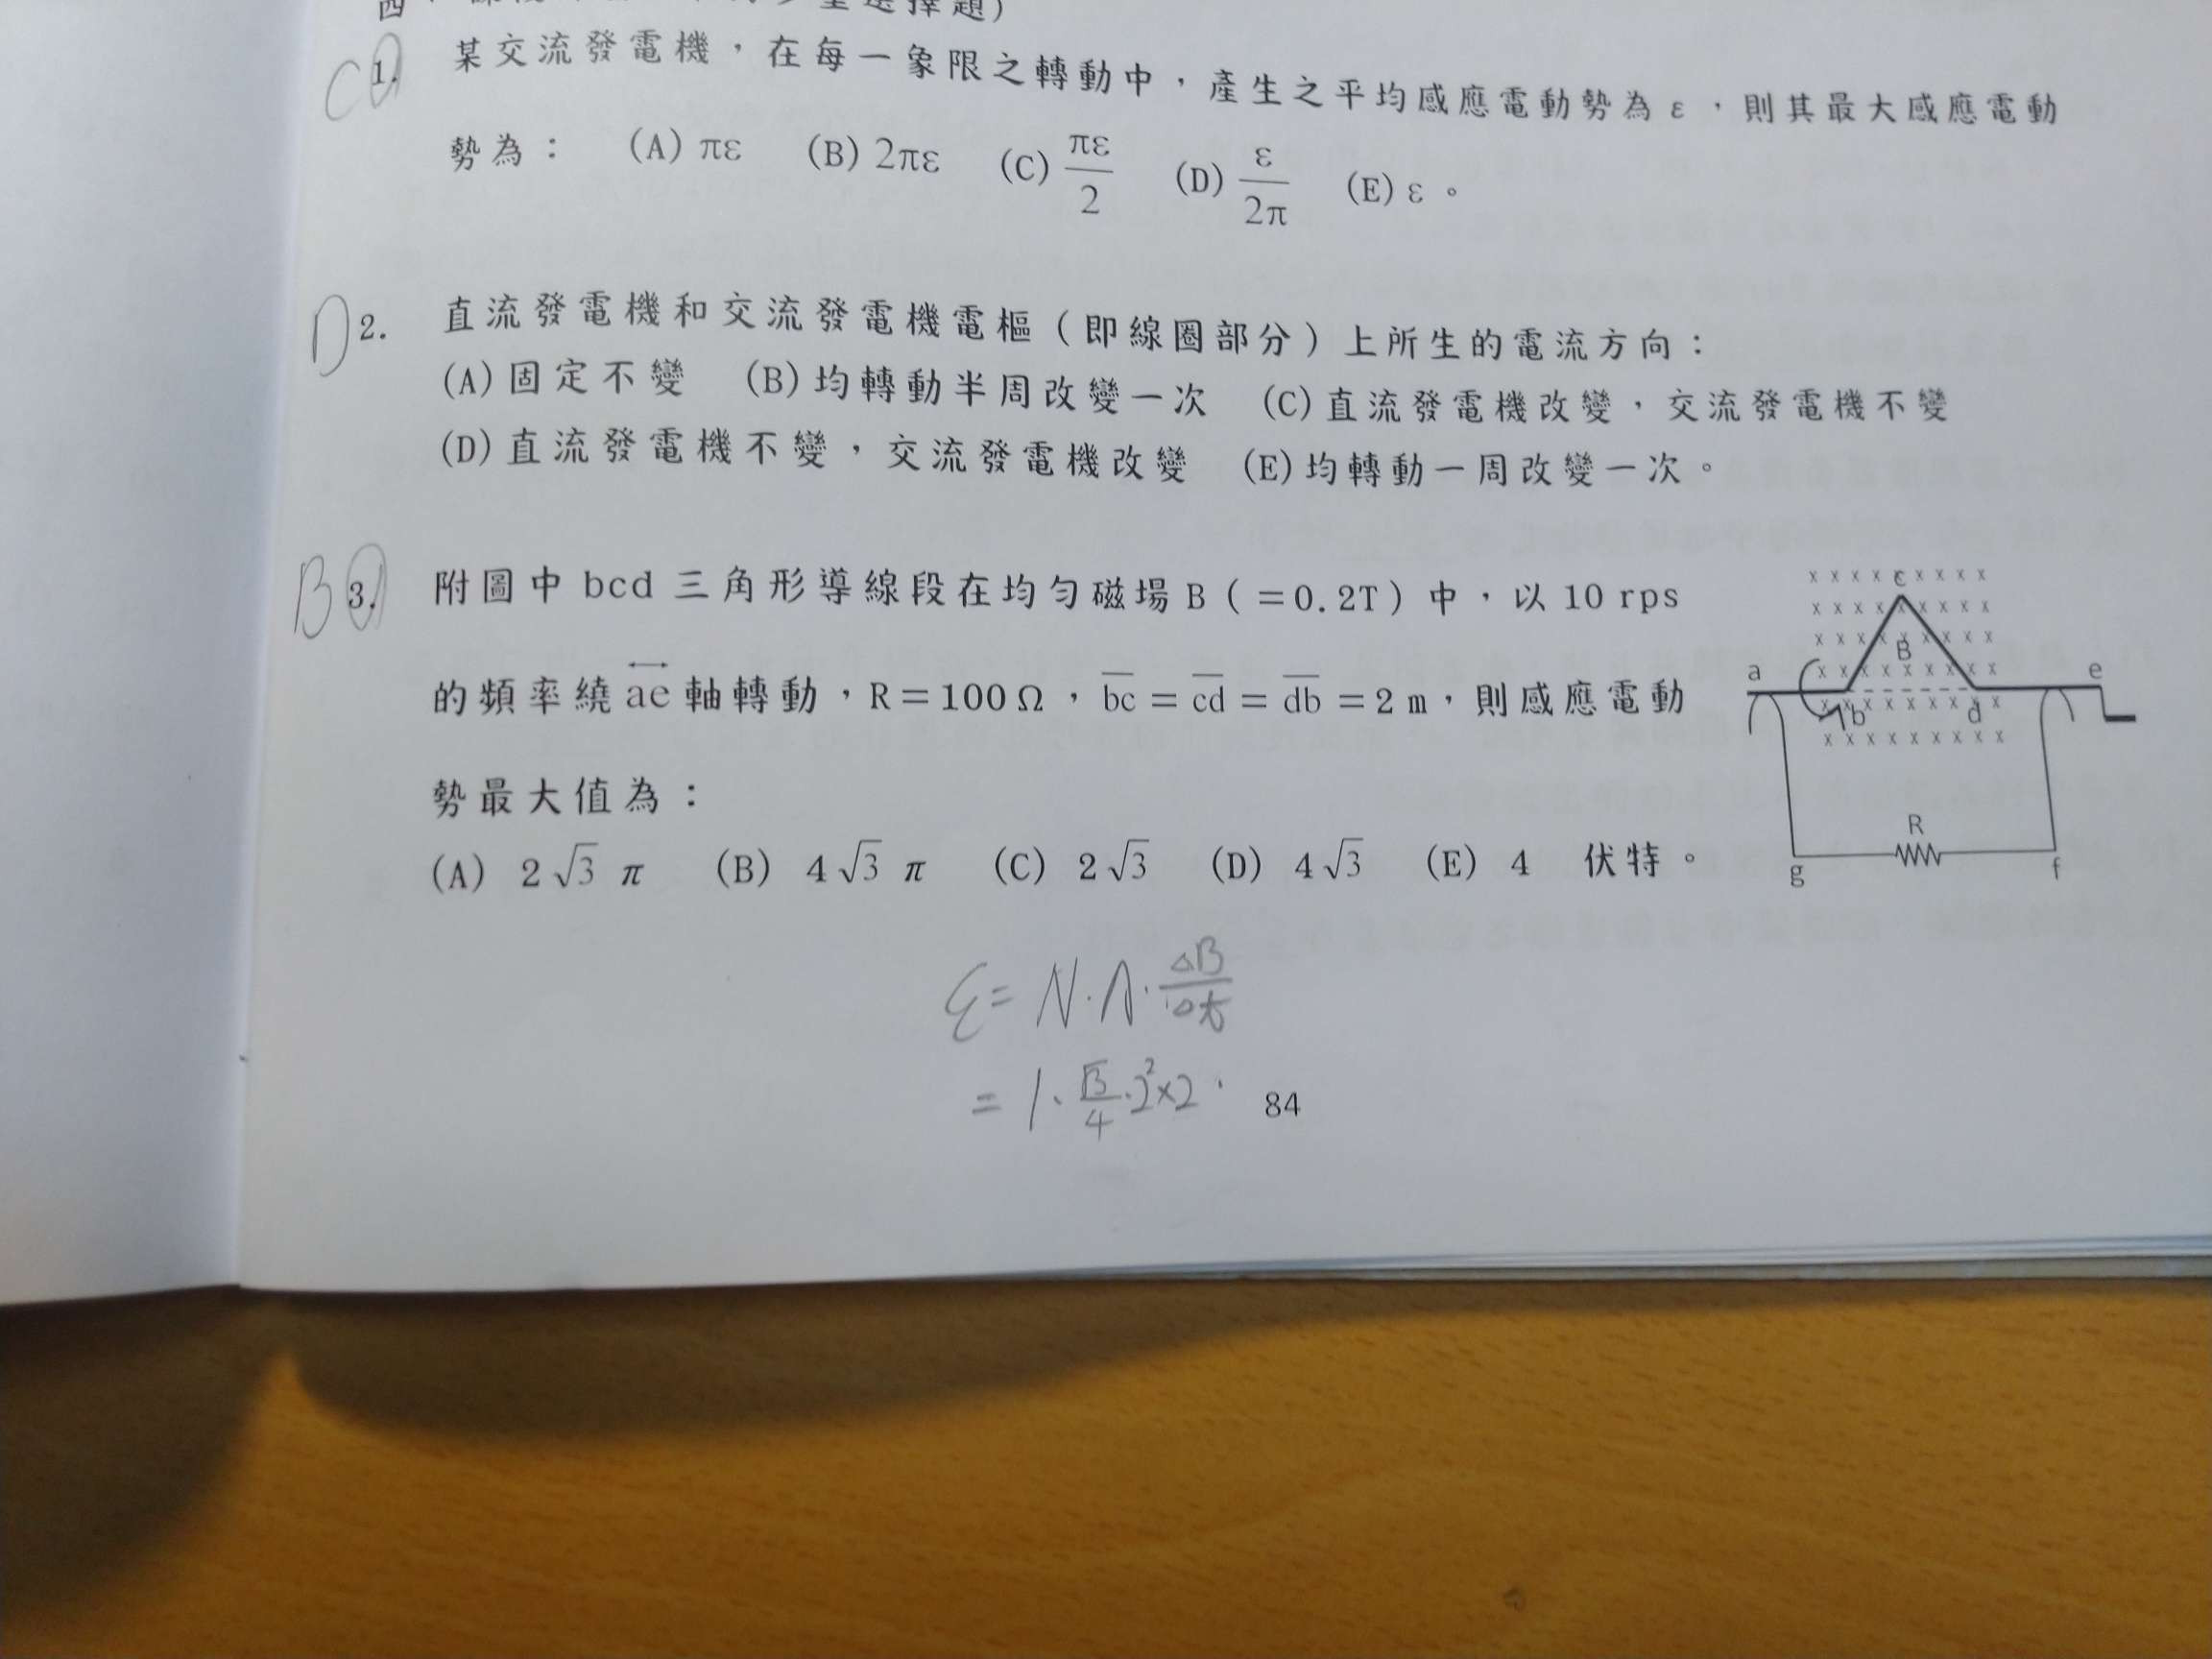 選擇題)
C 1. 某交流發電機，在每一象限之轉動中，產生之平均感應電動勢為 ε ，則其最大感應電動
勢為： (A) πε (B) 2πε (C) πε/2 (D) ε/2π (E) ε 。
D 2. 直流發電機和交流發電機電樞（即線圈部分）上所生的電流方向：
(A)固定不變 (B)均轉動半周改變一次 (C)直流發電機改變，交流發電機不變
(D)直流發電機不變，交流發電機改變 (E)均轉動一周改變一次。
B 3. 附圖中 bcd 三角形導線段在均勻磁場 B (=0.2T) 中，以 10 rps
的頻率繞 ae 軸轉動，R＝100 Ω，bc = cd = db = 2 m，則感應電動
勢最大值為：
(A) 2√3 π (B) 4√3 π (C) 2√3 (D) 4√3 (E) 4 伏特。
c
B
a
e
b
d
R
g
f
ε = N·A·ΔB/Δt
= 1·√3/4·2²×2·
84